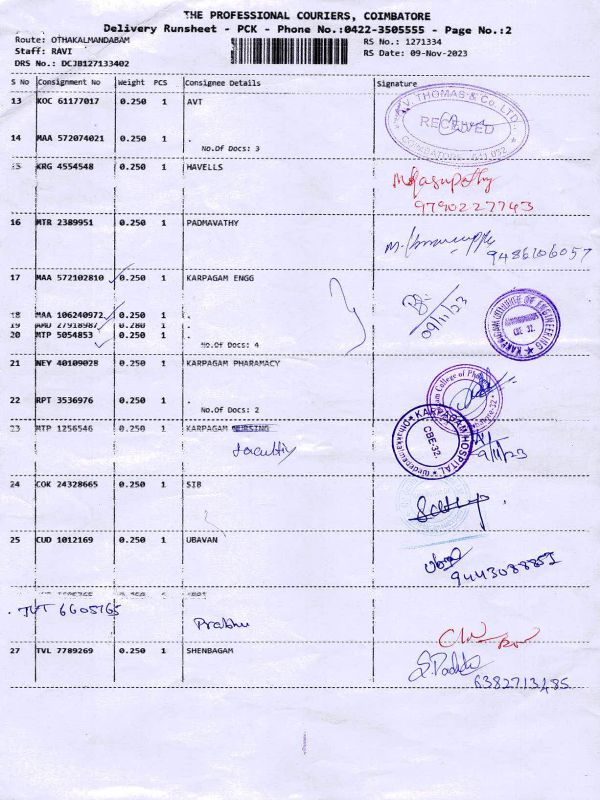 THE PROFESSIONAL COURIERS, COIMBATORE
Delivery Runsheet - PCK - Phone No.:0422-3505555 - Page No.:2
Route: OTHAKALMANDABAM
RS No.: 1271334
Staff: RAVI
RS Date: 09-Nov-2023
DRS No.: DCJB127133402
S No Consignment No Weight PCS Consignee Details Signature
13 KOC 61177017 0.250 1 AVT
V. THOMAS & Co. LTD.
RECEIVED
COIMBATORE - 641 032
14 MAA 572074021 0.250 1 .
No.Of Docs: 3
15 KRG 4554548 0.250 1 HAVELLS
9790227743
16 MTR 2389951 0.250 1 PADMAVATHY
9486106057
17 MAA 572102810 0.250 1 KARPAGAM ENGG
09/11/23
KARPAGAM COLLEGE OF ENGINEERING
CBE-32.
18 MAA 106240972 0.250 1 .
19 AMD 27918987 0.280 1 .
20 MTP 5054853 0.250 1 .
No.Of Docs: 4
21 NEY 40109028 0.250 1 KARPAGAM PHARAMACY
22 RPT 3536976 0.250 1 .
No.Of Docs: 2
23 MTP 1256546 0.250 1 KARPAGAM NURSING
faculty
KARPAGAM HOSPITAL
CBE-32.
9/11/23
24 COK 24328665 0.250 1 SIB
25 CUD 1012169 0.250 1 UBAVAN
9443088852
TVT 6605765
Prabhu
27 TVL 7789269 0.250 1 SHENBAGAM
6382713485